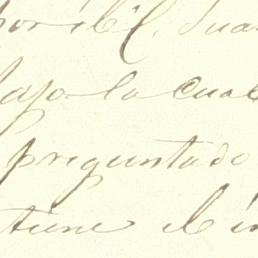 por el C. Jua
bajo la cual
preguntado
tiene el in